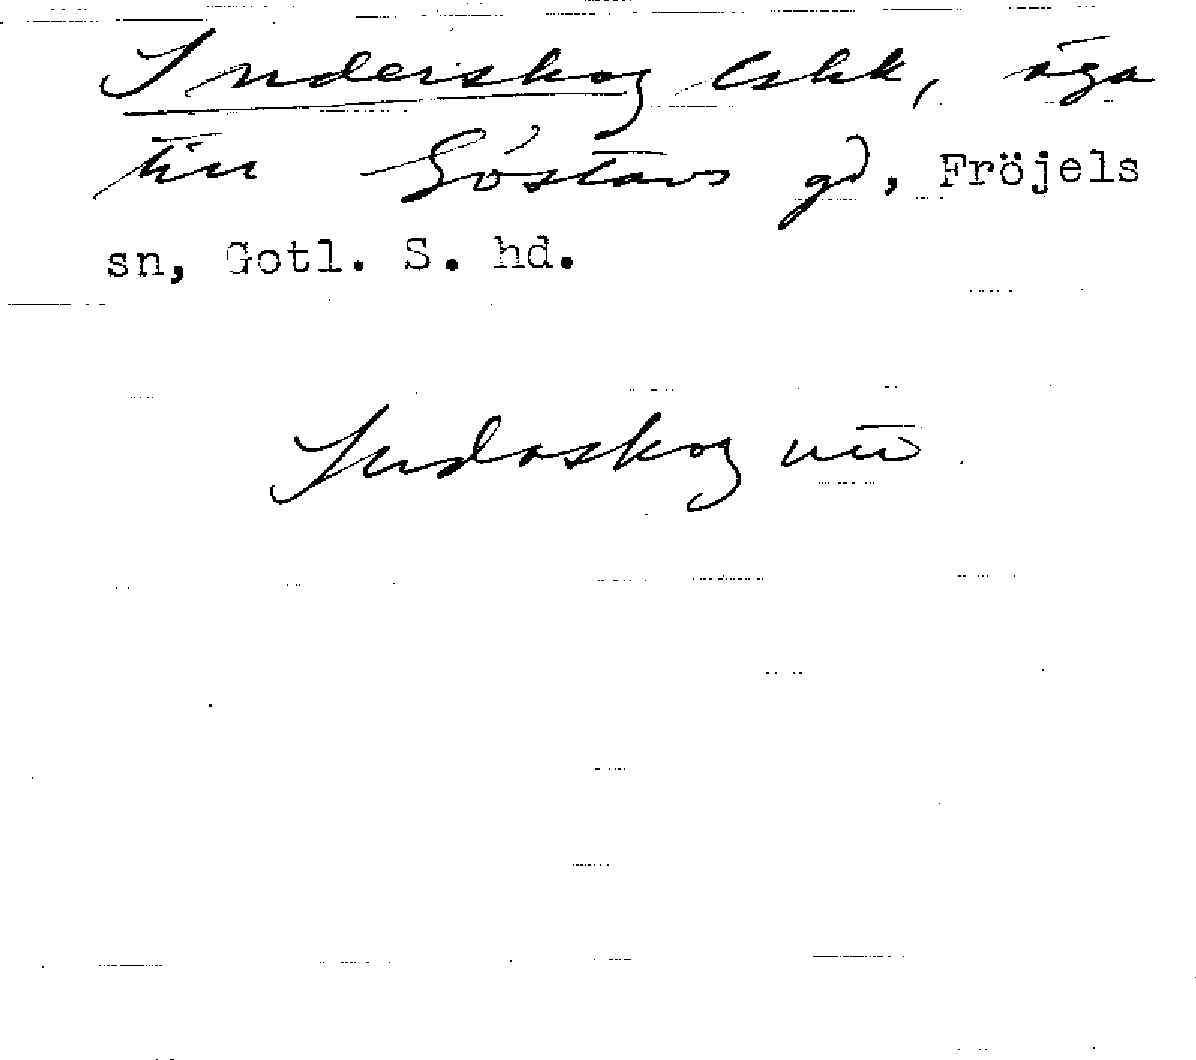 Inderskog lskk, äga
till Góstavs gd, Fröjels
sn, Gotl. S. hd.
Indoskog